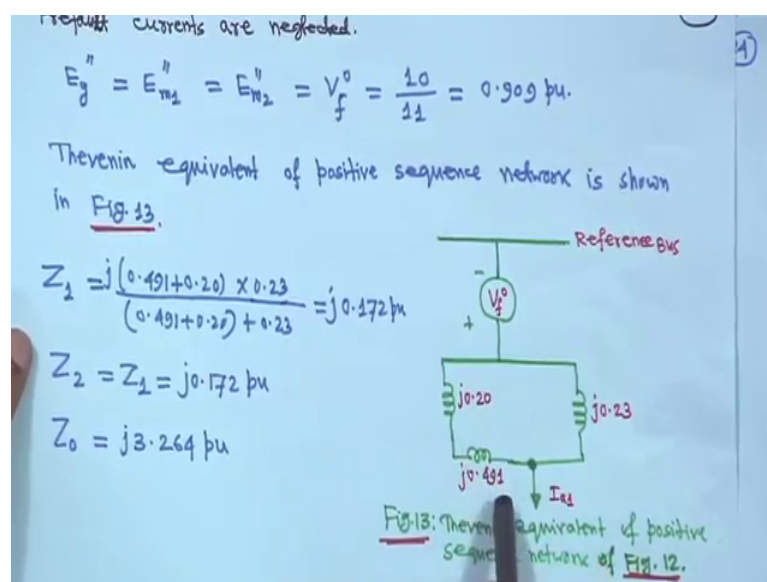 Prefault currents are neglected.
E"g = E"m1 = E"m2 = V°f = 10/11 = 0.909 pu.
Thevenin equivalent of positive sequence network is shown
in Fig. 13.
Z1 = j(0.491+0.20) × 0.23 / (0.491+0.20) + 0.23 = j0.172 pu
Z2 = Z1 = j0.172 pu
Z0 = j3.264 pu
Reference Bus
-
V°f
+
j0.20
j0.23
j0.491
Ia1
Fig.13: Theven equivalent of positive
seque network of Fig. 12.